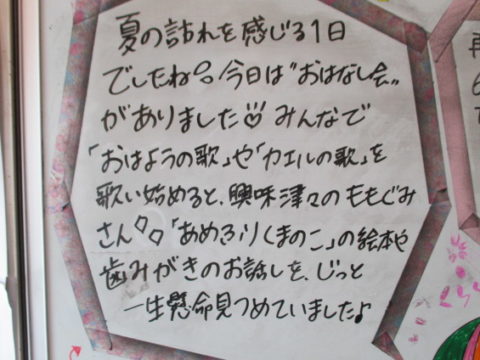 夏の訪れを感じる1日
でしたね。今日は"おはなし会"
がありました♡みんなで
「おはようの歌」や「カエルの歌」を
歌い始めると、興味津々のももぐみ
さん 「あめふりくまのこ」の絵本や
歯みがきのお話しを、じっと
一生懸命見つめていました♪
再